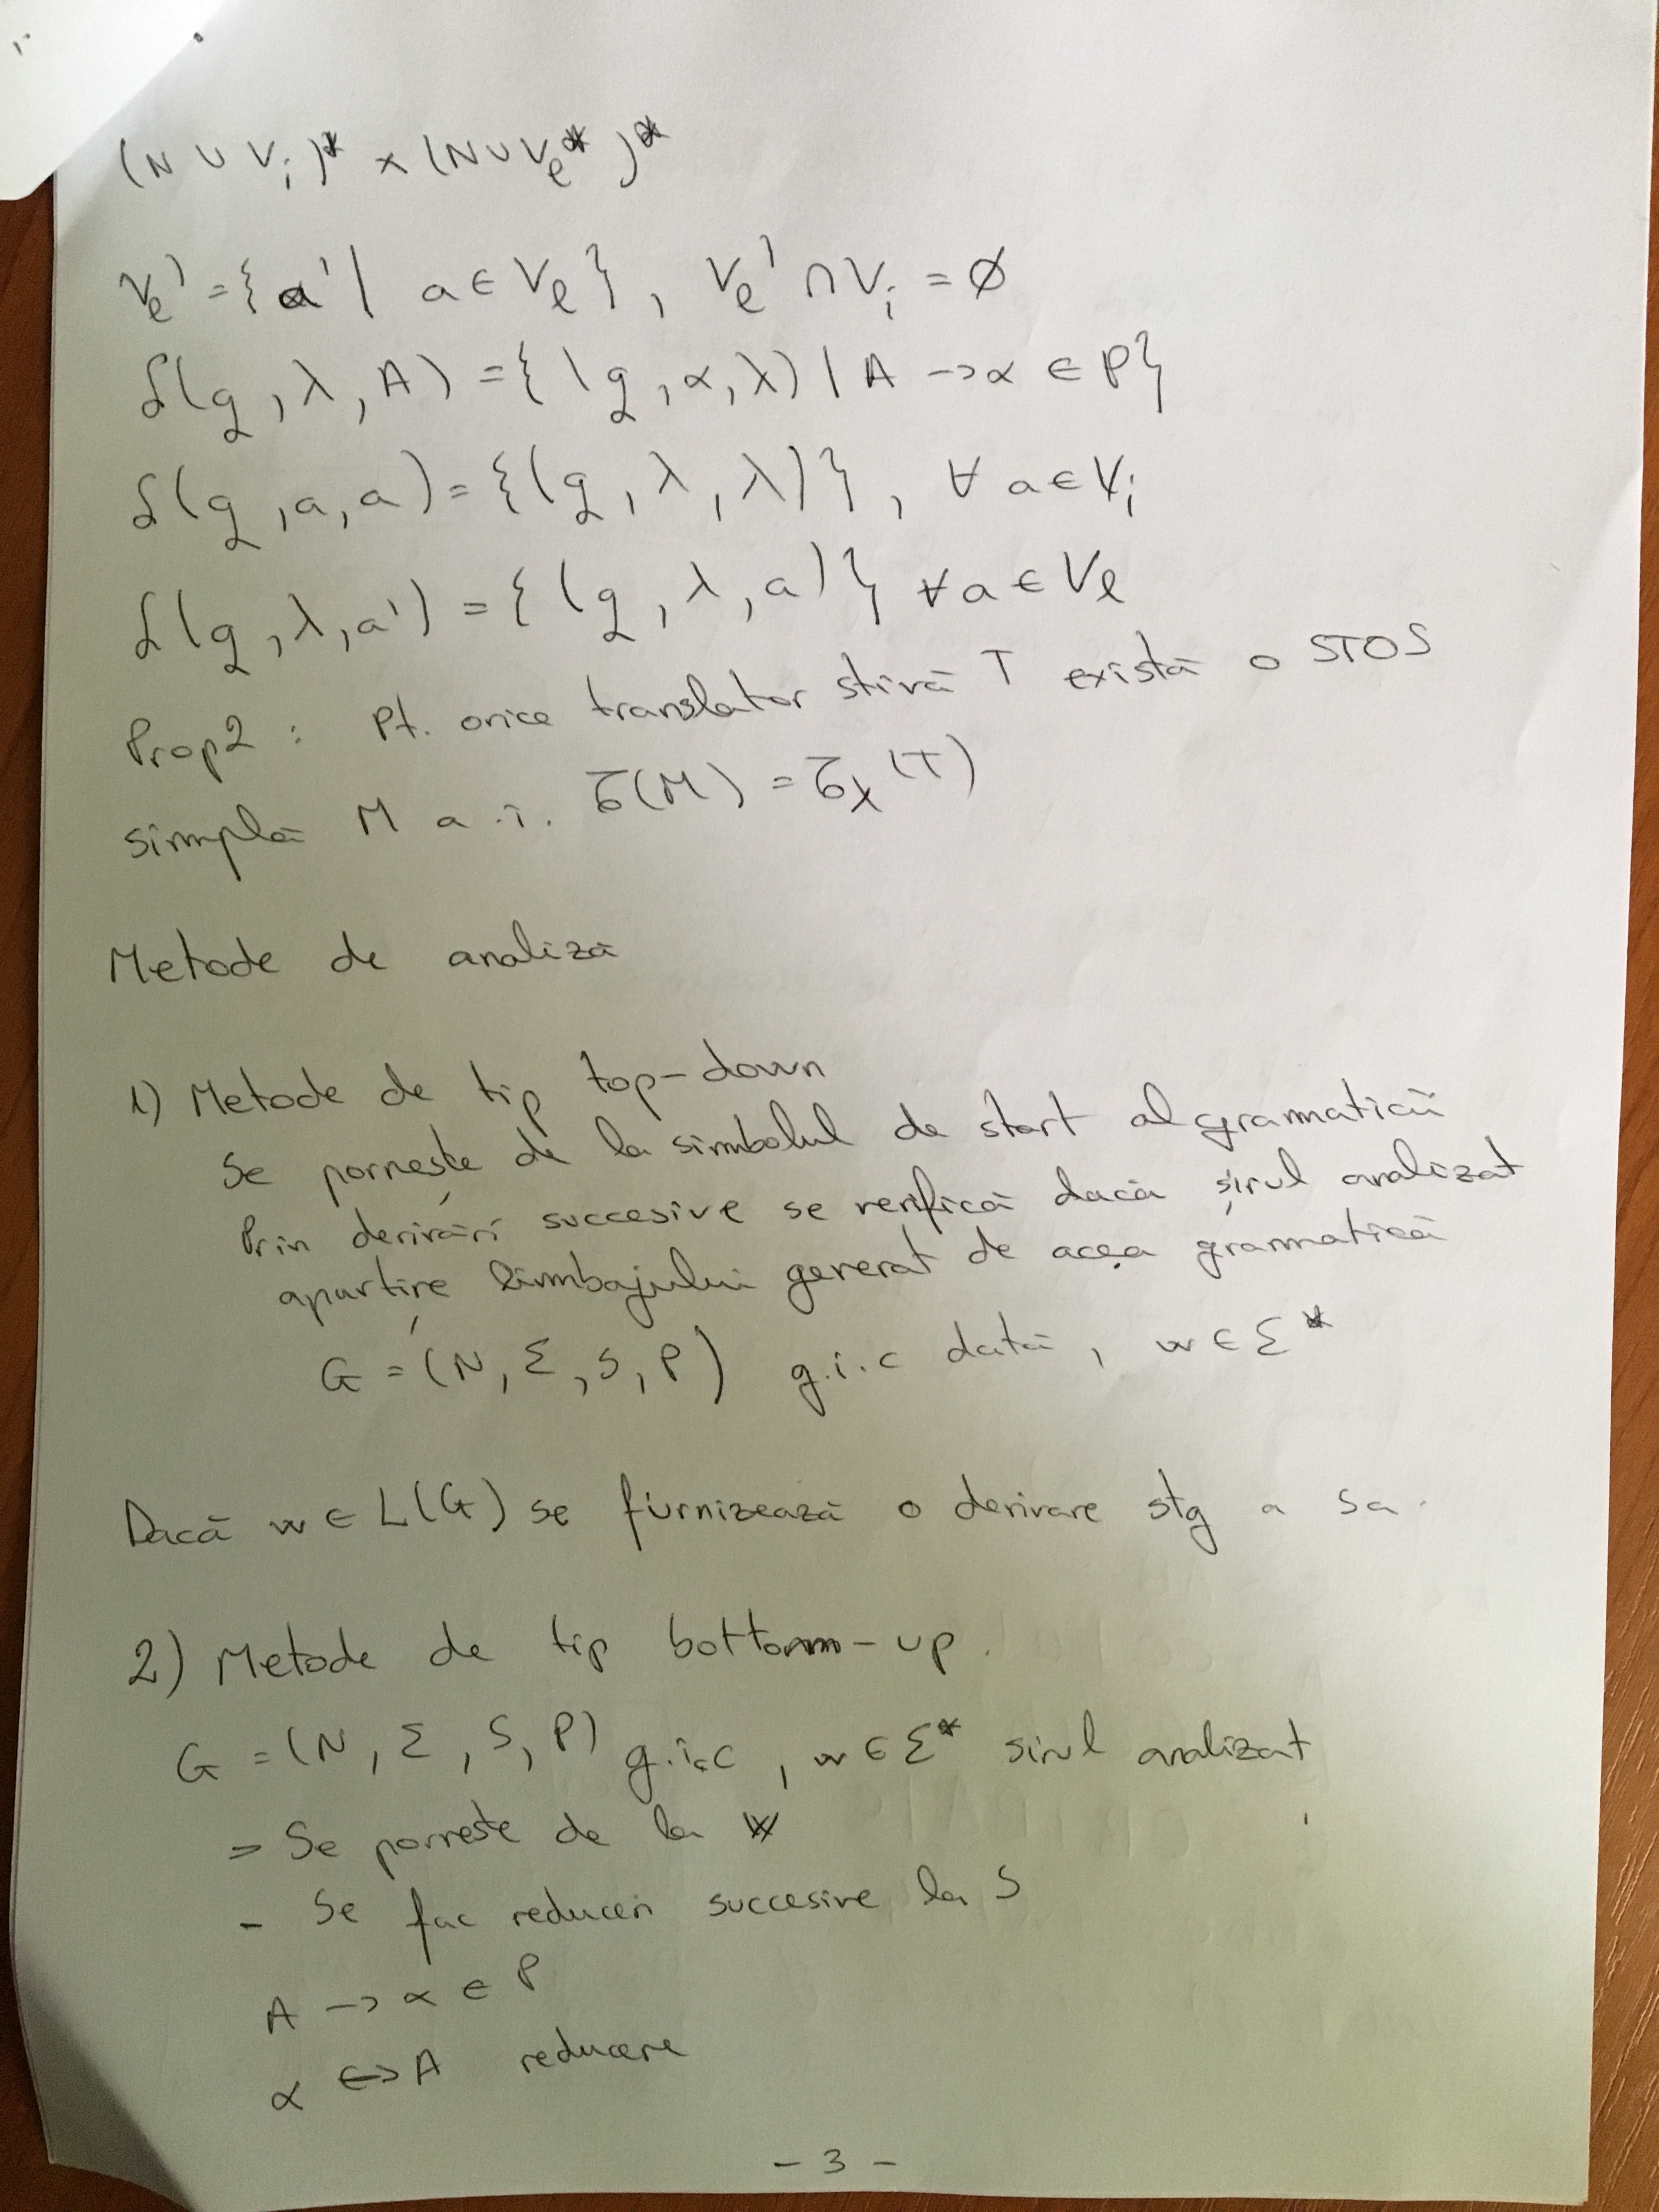 (N ∪ Vi)* × (N ∪ Ve*)*
Ve' = {a' | a ∈ Ve}, Ve' ∩ Vi = ∅
δ(q, λ, A) = {(q, α, λ) | A -> α ∈ P}
δ(q, a, a) = {(q, λ, λ)}, ∀ a ∈ Vi
δ(q, λ, a') = {(q, λ, a)} ∀ a ∈ Ve
Prop2 : Pt. orice translator stivă T există o STOS
simplă M a.î. τ(M) = τλ(T)
Metode de analiză
1) Metode de tip top-down
Se pornește de la simbolul de start al gramaticii
Prin derivări succesive se verifică dacă șirul analizat
aparține limbajului generat de acea gramatică
G = (N, Σ, S, P) g.i.c dată, w ∈ Σ*
Dacă w ∈ L(G) se furnizează o derivare stg a sa.
2) Metode de tip bottom-up.
G = (N, Σ, S, P) g.i.c, w ∈ Σ* sirul analizat
- Se porneste de la w
- Se fac reduceri succesive la S
A -> α ∈ P
α <-> A reducere
- 3 -